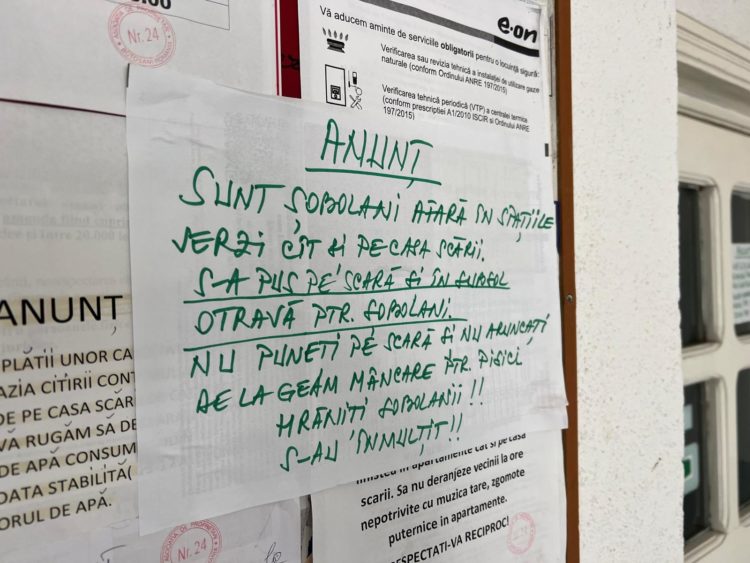 Nr. 24
e.on
Vă aducem aminte de serviciile obligatorii pentru o locuință sigură:
Verificarea sau revizia tehnică a instalației de utilizare gaze
naturale (conform Ordinului ANRE 197/2015)
Verificarea tehnică periodică (VTP) a centralei termice
(conform prescripției A1/2010 ISCIR si Ordinului ANRE
197/2015)
ANUNȚ
SUNT ȘOBOLANI AFARĂ ÎN SPAȚIILE
VERZI CÎT SI PE CASA SCĂRII.
S-A PUS PE SCARĂ SI ÎN SUBSOL
OTRAVĂ PTR. SOBOLANI.
NU PUNETI PE SCARĂ SI NU ARUNCAȚI
DE LA GEAM MÂNCARE PTR. PISICI
HRĂNITI SOBOLANII!!
S-AU ÎNMULȚIT!!
ANUNT
PLĂTII UNOR CA
AZIA CITIRII CONT
DE PE CASA SCĂR
VĂ RUGĂM SA DE
DE APĂ CONSUM
DATA STABILITĂ(
ORUL DE APĂ.
în apartamente cat si pe casa
scarii. Sa nu deranjeze vecinii la ore
nepotrivite cu muzica tare, zgomote
puternice in apartamente.
RESPECTATI-VA RECIPROC!
Nr. 24